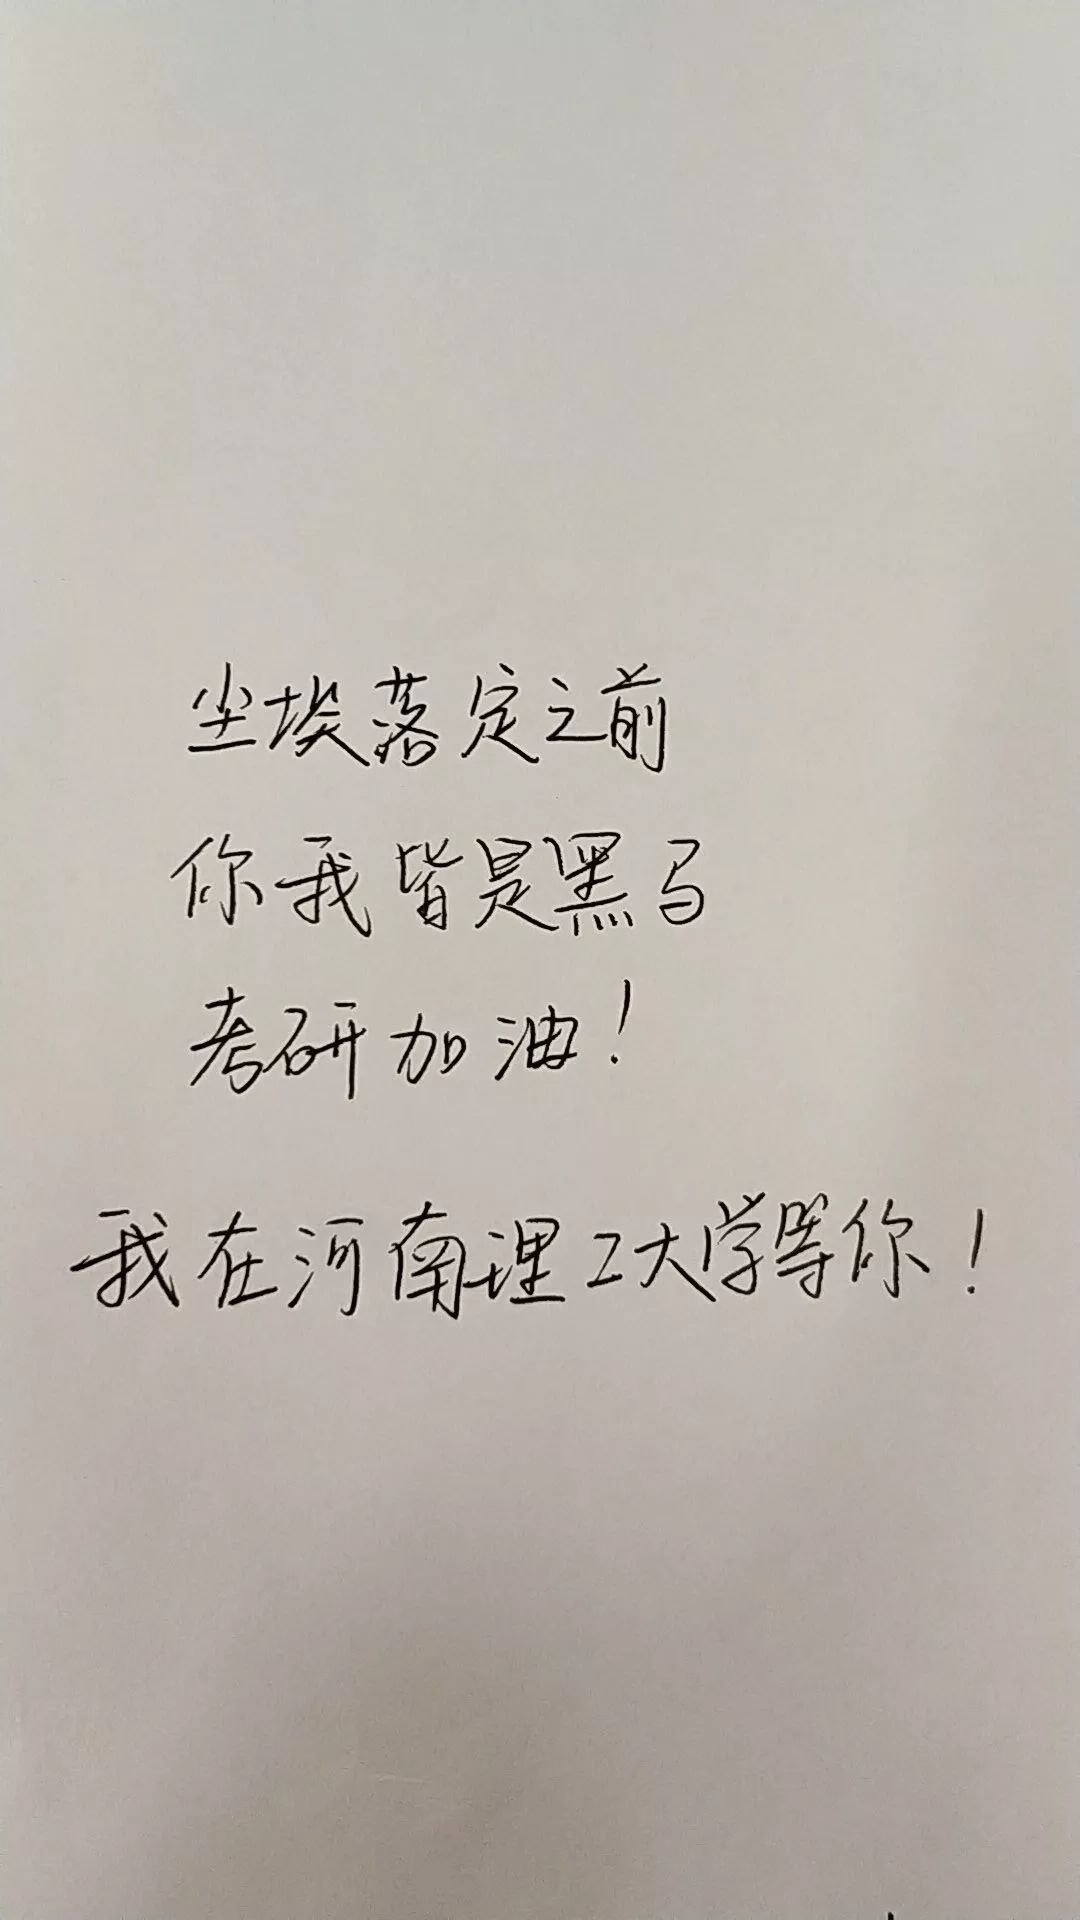 尘埃落定之前
你我皆是黑马
考研加油！
我在河南理工大学等你！